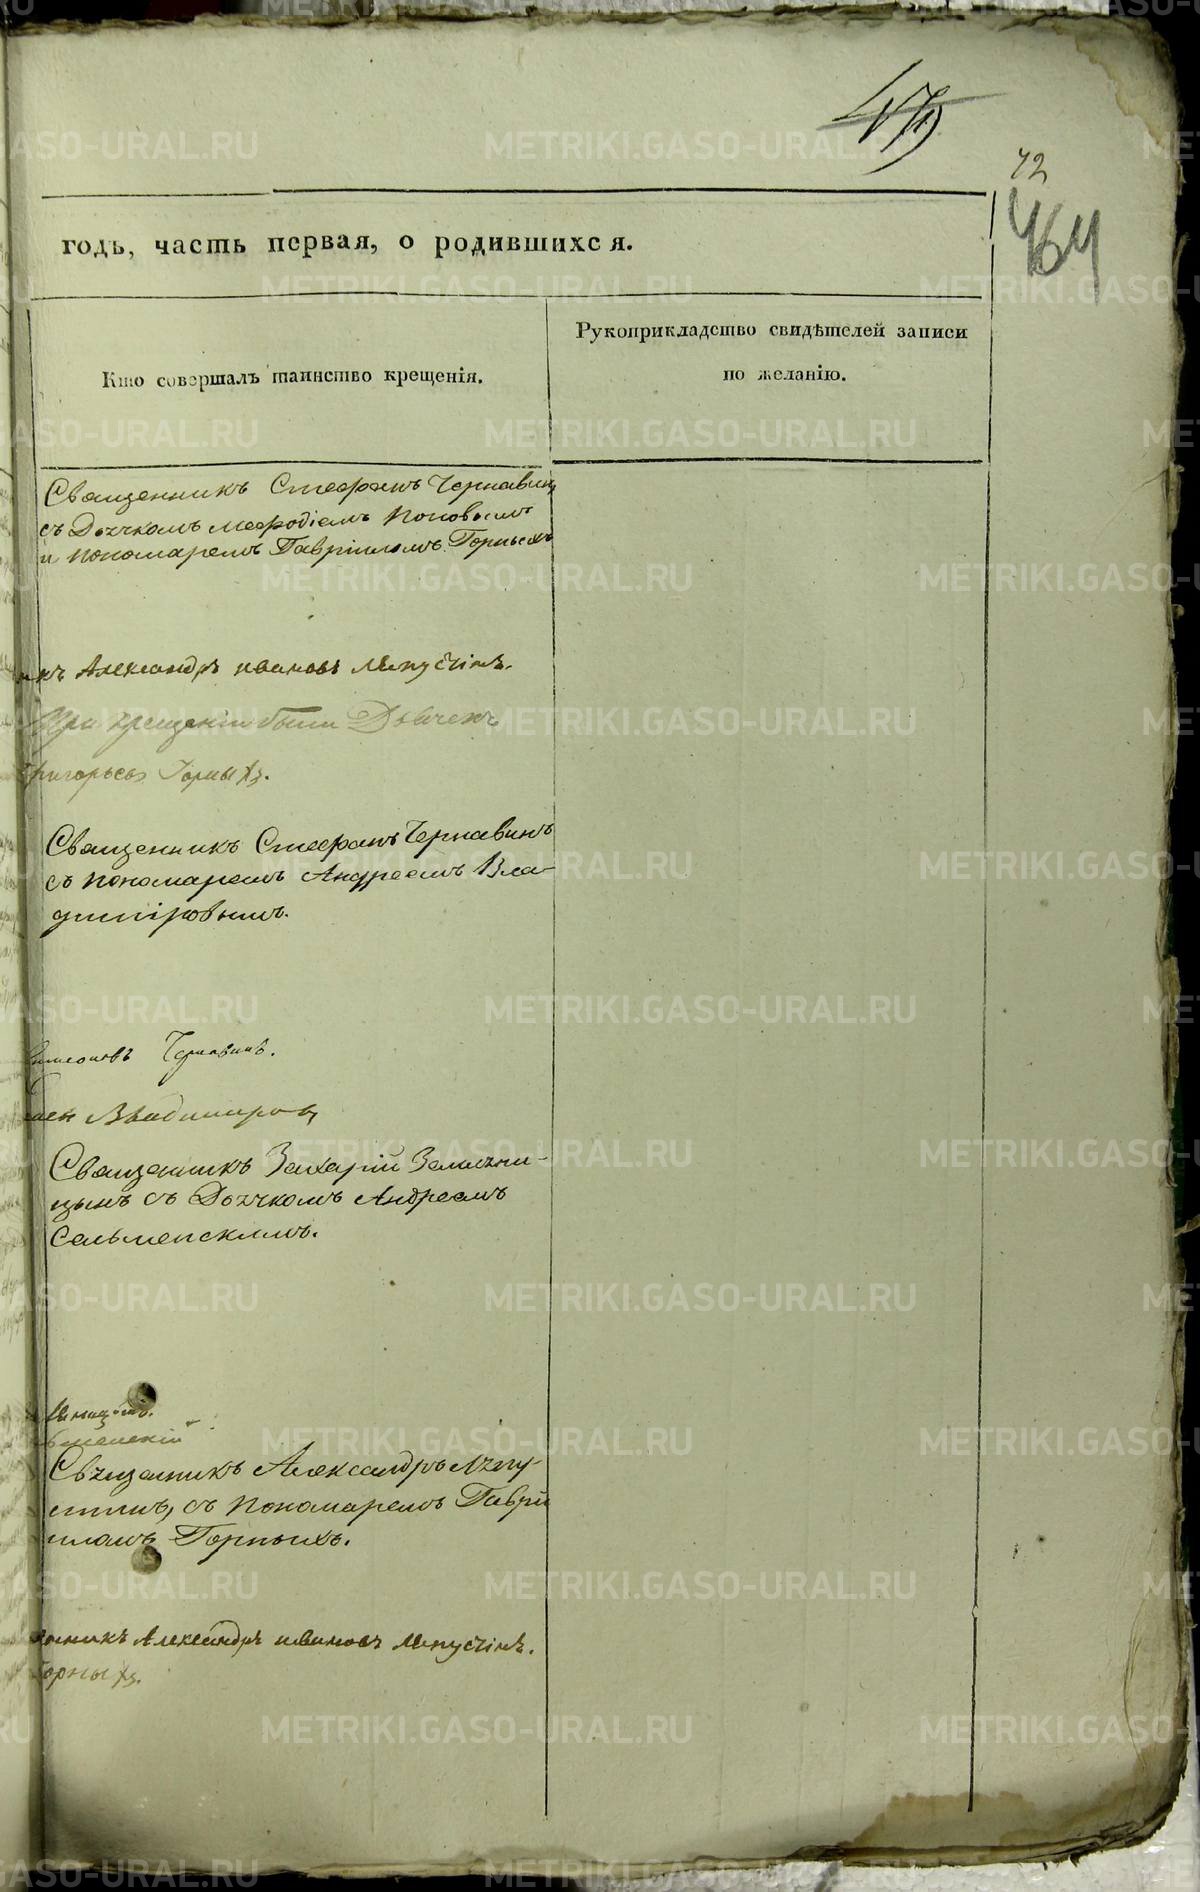 72
464
годъ, часть первая, о родившихся.
Кто совершалъ таинство крещенія.
Рукоприкладство свидѣтелей записи
по желанію.
Священникъ Стефанъ Чернавинъ
съ Дьячкомъ Меѳодіемъ Поповымъ
и пономаремъ Гавріиломъ Горныхъ
Александръ Ивановъ Ляпустинъ.
При крещеніи были Дьячекъ
Григорьевъ Горныхъ.
Священникъ Стефанъ Чернавинъ
съ пономаремъ Андреемъ Вла-
диміровымъ.
Симеоновъ Чернавинъ.
Владимировъ
Священникъ Захарій
съ Дьячкомъ Андреемъ
Священникъ Александръ Ляпу-
стинъ, съ пономаремъ Гаврі
иломъ Горныхъ.
Александръ Ивановъ Ляпустинъ.
Горныхъ.
METRIKI.GASO-URAL.RU